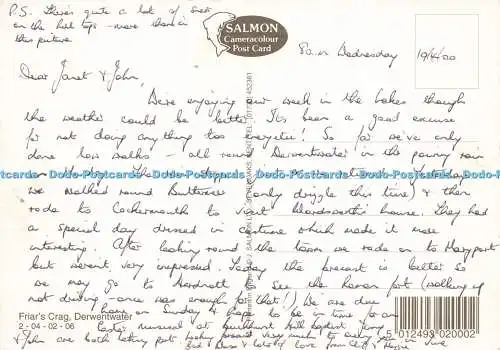 P.S. There's quite a lot of snow
on the hill tops - more than in
this picture.
SALMON
Cameracolour
Post Card
8a.m Wednesday 19/4/00
Dear Janet & John,
We're enjoying our week in the Lakes though
the weather could be better. It's been a good excuse
for not doing anything too energetic! So far we've only
done low walks - all round Derwentwater in the pouring rain
Dodo-Postcards Dodo-Postcards Dodo-Postcards Dodo-Postcards Dodo-Postcards
we walked round Buttermere (only drizzle this time) & then
rode to Cockermouth to visit Wordsworth's house. They had
a special day dressed in costume which made it more
interesting. After looking round the town we rode on to Maryport
but weren't very impressed. Today the forecast is better so
we may go to Hardknott & See the Roman fort (walking up
not driving - once was enough for that!). We are due
home on Sunday & hope to be in time for an
Easter at Baptist
& John are both very much to in June
love from
Friar's Crag, Derwentwater
2-04-02-06
5 012493 020002